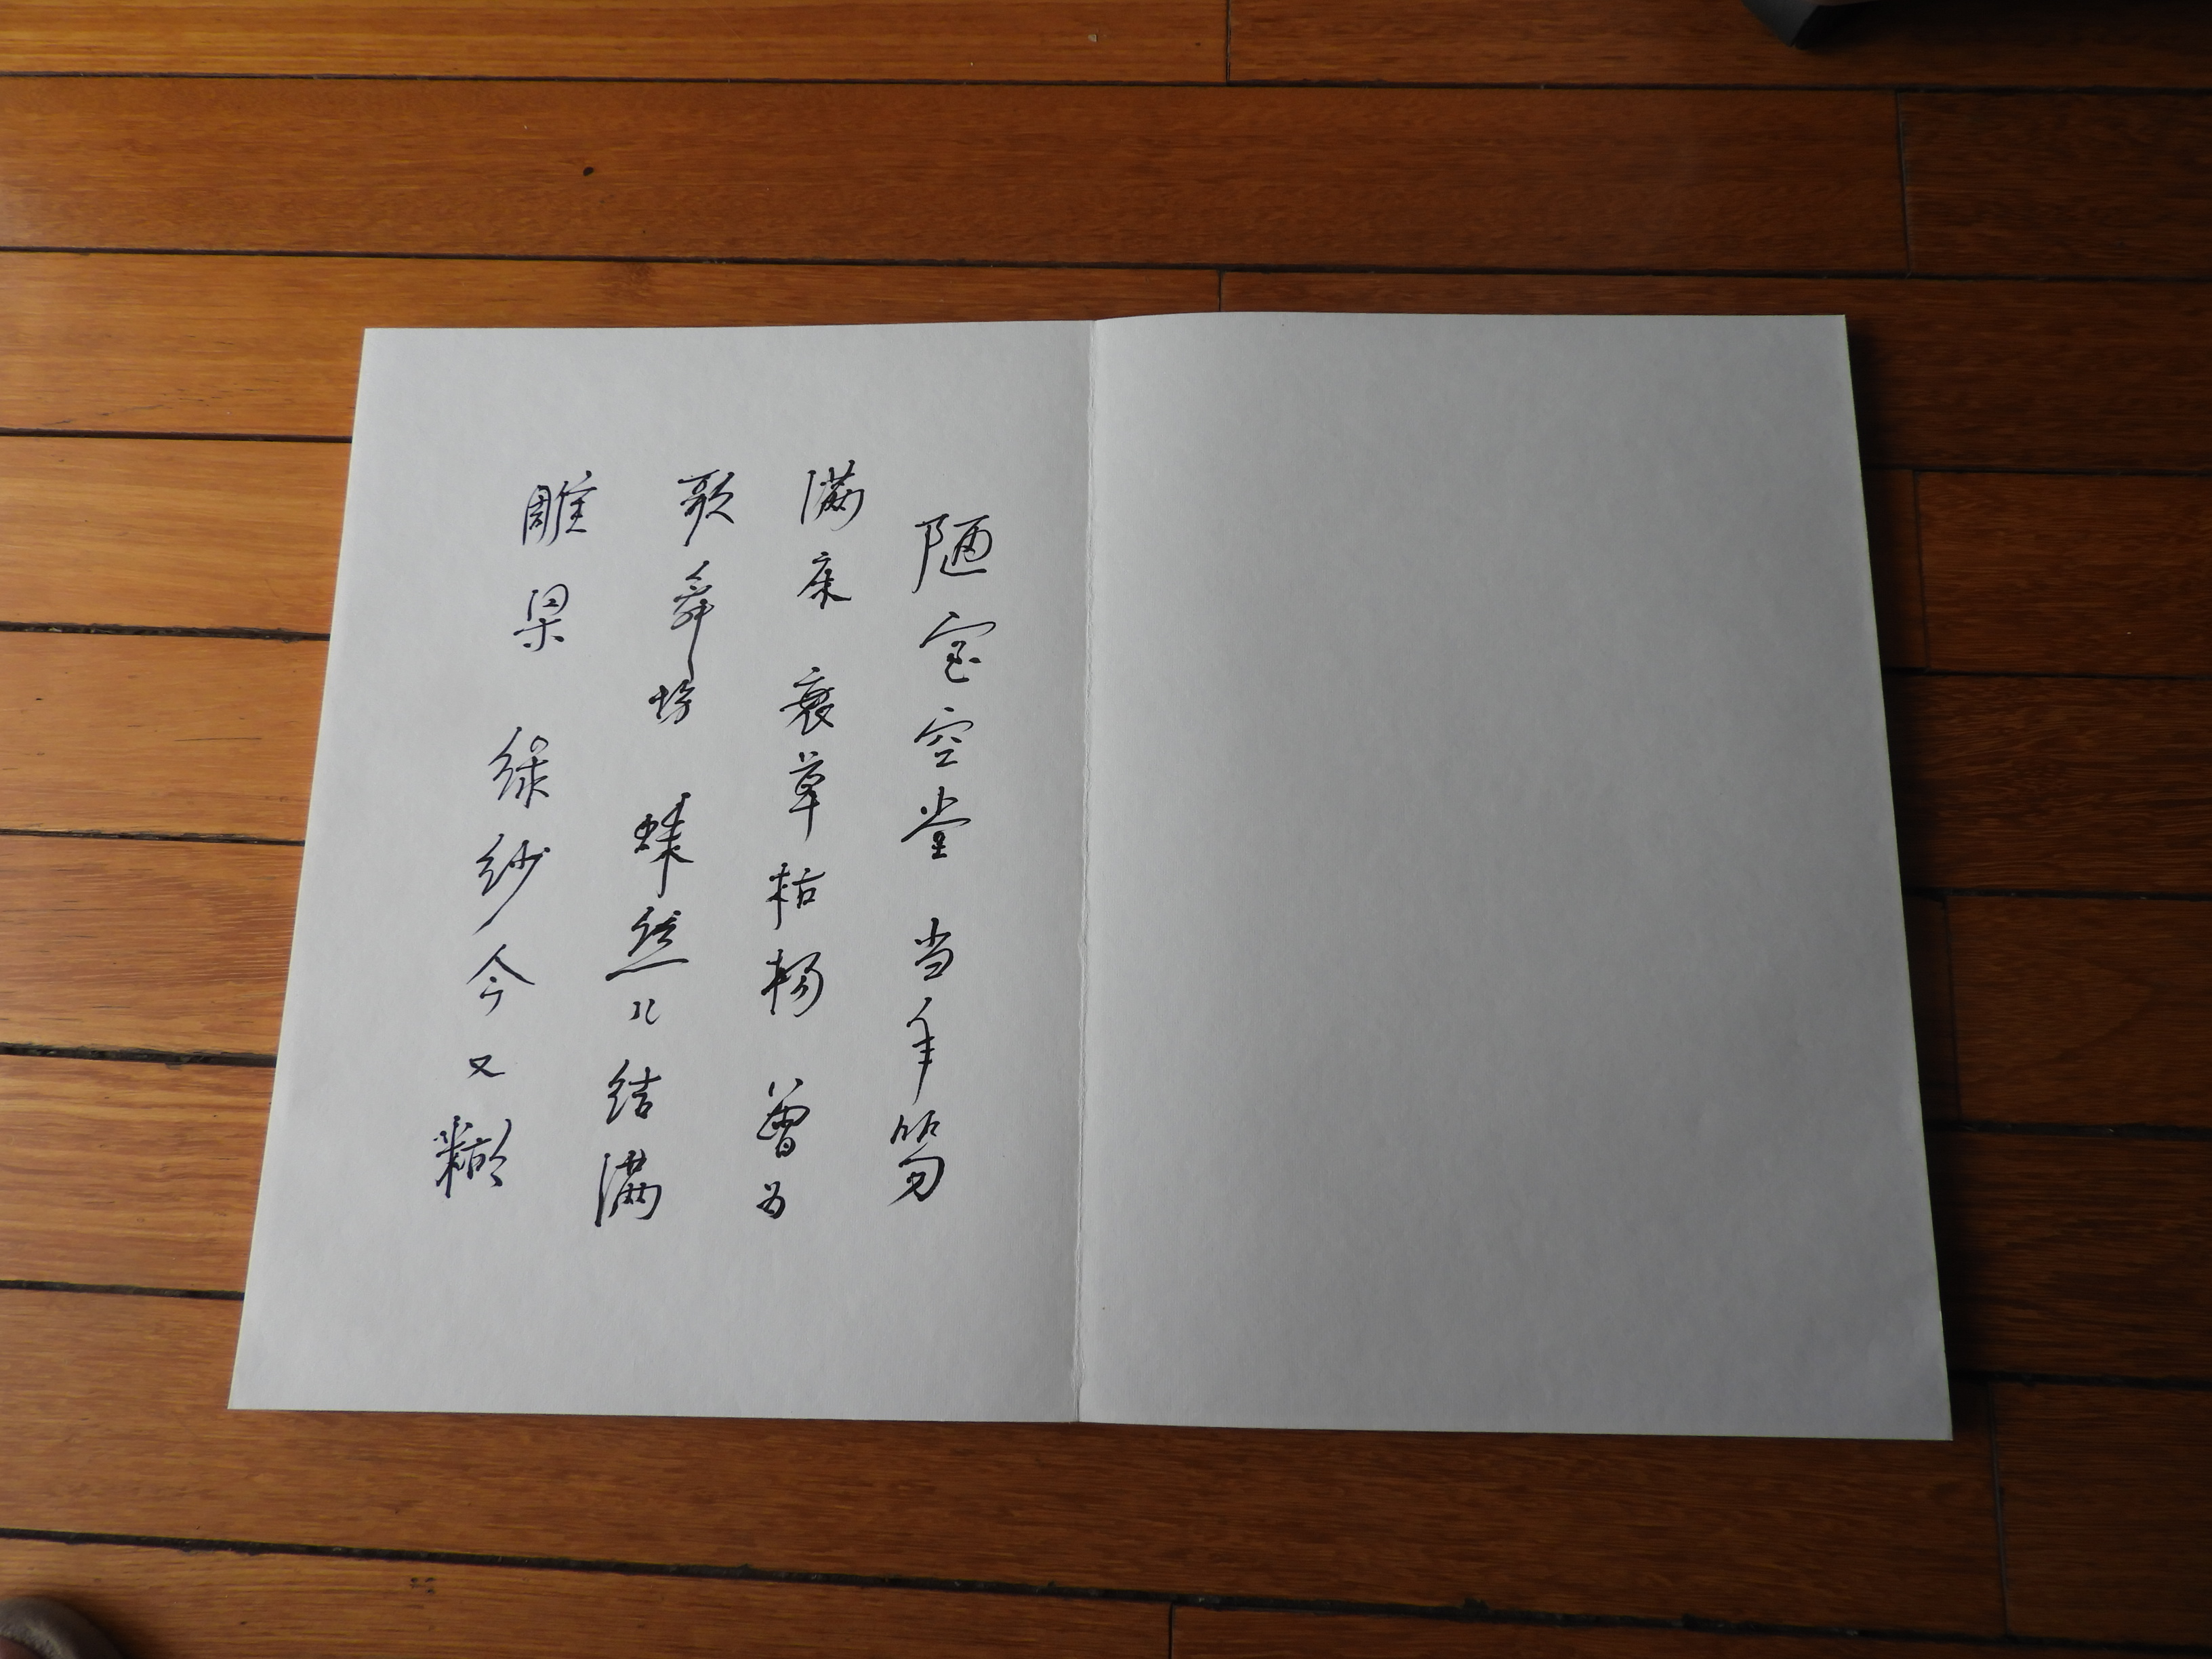 陋室空堂 当年笏
满床 衰草枯杨 曾为
歌舞场 蛛丝儿结满
雕梁 绿纱今又糊